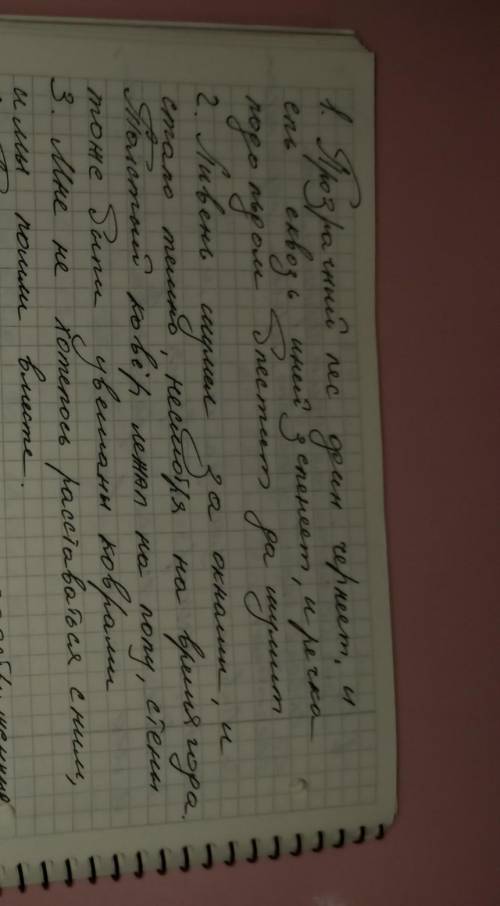 1. Прозрачный лес один чернеет, и
ель сквозь иней зеленеет, и речка
подо льдом блестит да шумит
2. Ливень шумел за окнами, и
стало темно, несмотря на время года.
Толстый ковёр лежал на полу, стены
тоже были увешаны коврами
3. Мне не хотелось расставаться с ним,
и мы пошли вместе.